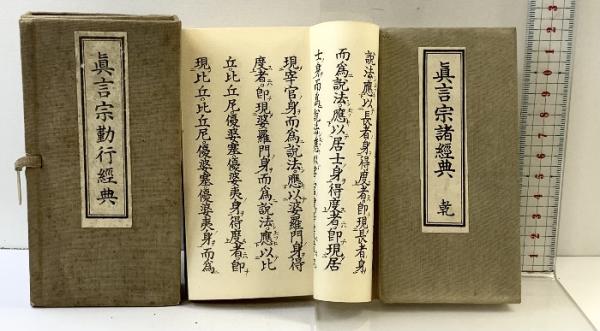 眞言宗諸經典 乾
説法應以長者身得度者即現長者身
而爲説法應以居士身得度者即現居
士身而爲説法應
現宰官身而爲説法應以婆羅門身得
度者即現婆羅門身而爲説法應以比
丘比丘尼優婆塞優婆夷身得度者即
現比丘比丘尼優婆塞優婆夷身而爲
眞言宗勤行經典